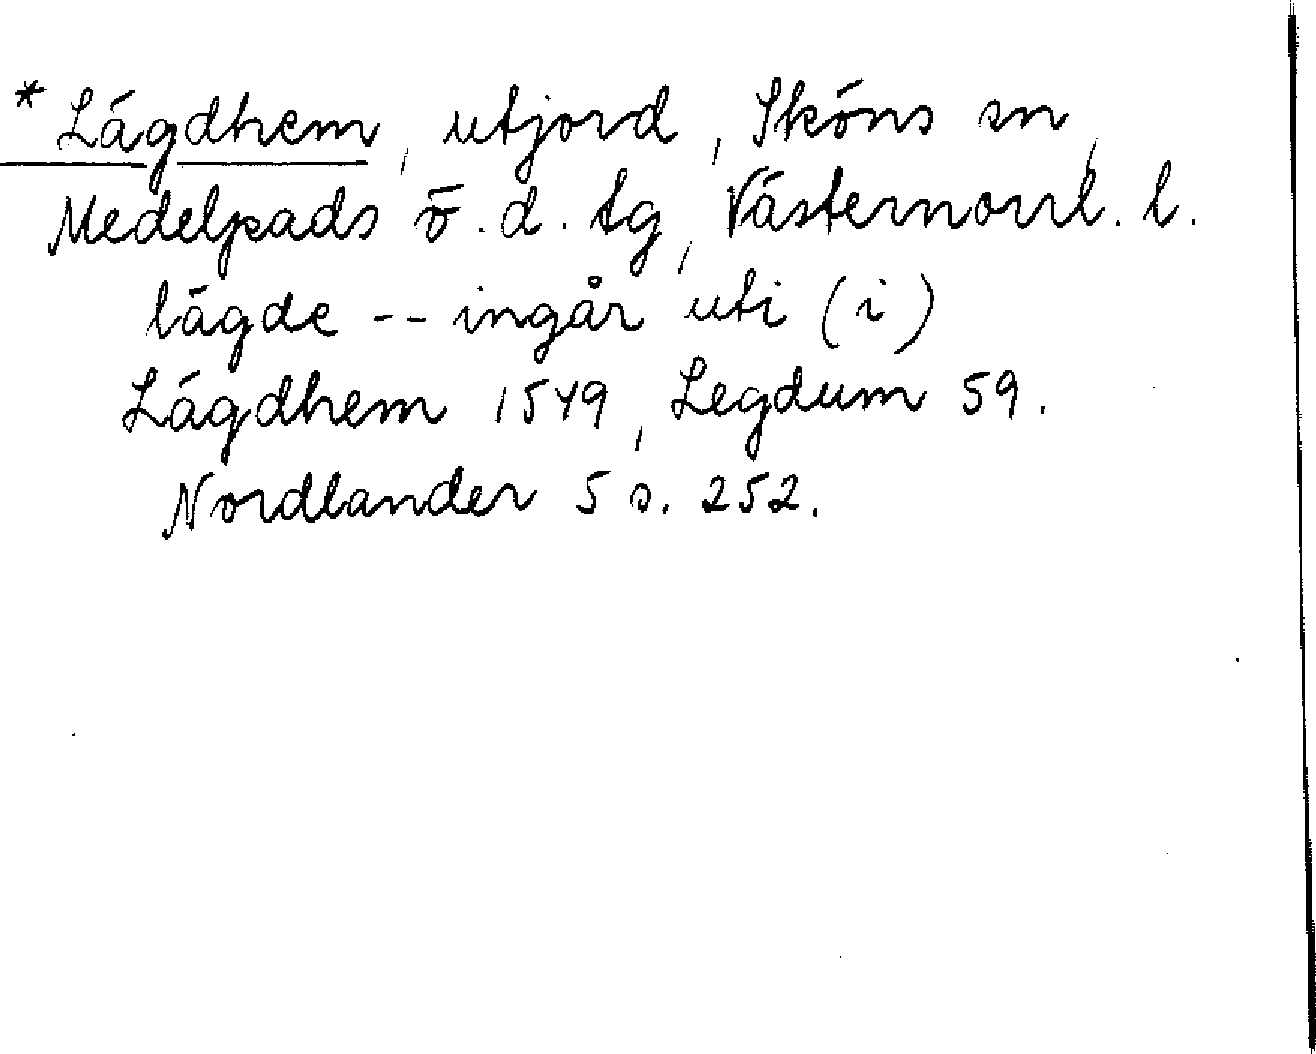 * Lägdhem, utjord, Sköns sn,
Medelpads ö. d. tg, Västernorrl. l.
lägde -- ingår uti (i)
Lägdhem 1549, Legdum 59.
Nordlander 5 s. 252.